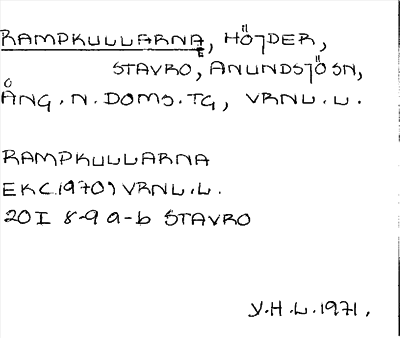 RAMPKULLARNA, HÖJDER,
STAVRO, ANUNDSJÖ SN,
ÅNG. N. DOMS. TG, VRNL. L.
RAMPKULLARNA
EK(1970) VRNL. L.
20I 8-9 a-b STAVRO
Y.H.L. 1971.